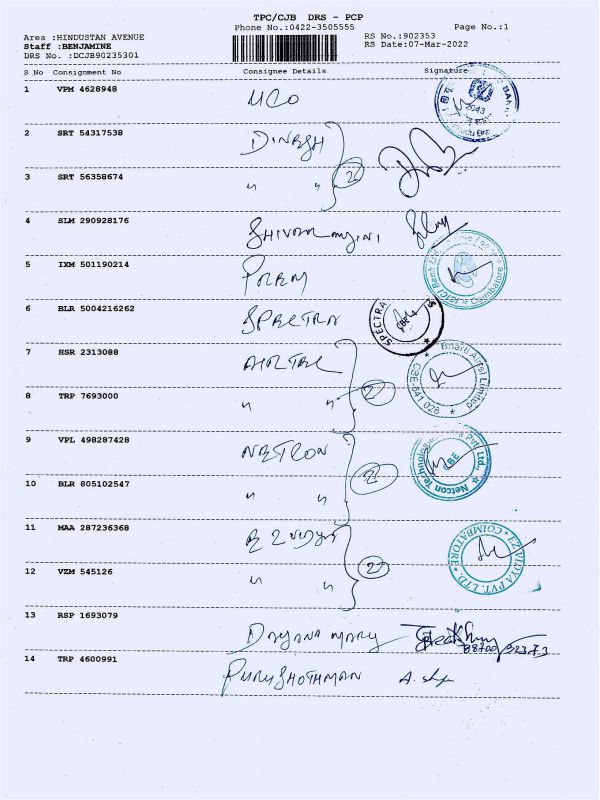 TPC/CJB DRS - PCP
Phone No.:0422-3505555 Page No.:1
Area :HINDUSTAN AVENUE RS No.:902353
Staff :BENJAMINE RS Date:07-Mar-2022
DRS No. :DCJB90235301
S No Consignment No Consignee Details Signature
1 VPM 4628948 UCO
2043
2 SRT 54317538 DINESH
2
3 SRT 56358674 " "
4 SLM 290928176
5 IXM 501190214 PREM
ICICI Bank Coimbatore
6 BLR 5004216262 SPECTRA
SPECTRA
7 HSR 2313088 AIRTEL
Bharti Airtel Limited
CBE-641 028
8 TRP 7693000 " " 2
9 VPL 498287428 NETCON
Netcon Technologies Pvt Ltd.,
CBE
10 BLR 805102547 " " 2
11 MAA 287236368
EZ VIDYA PVT. LTD. COIMBATORE
12 VZM 545126 " " 2
13 RSP 1693079 DAYANA MARY
14 TRP 4600991 PURUSHOTHMAN